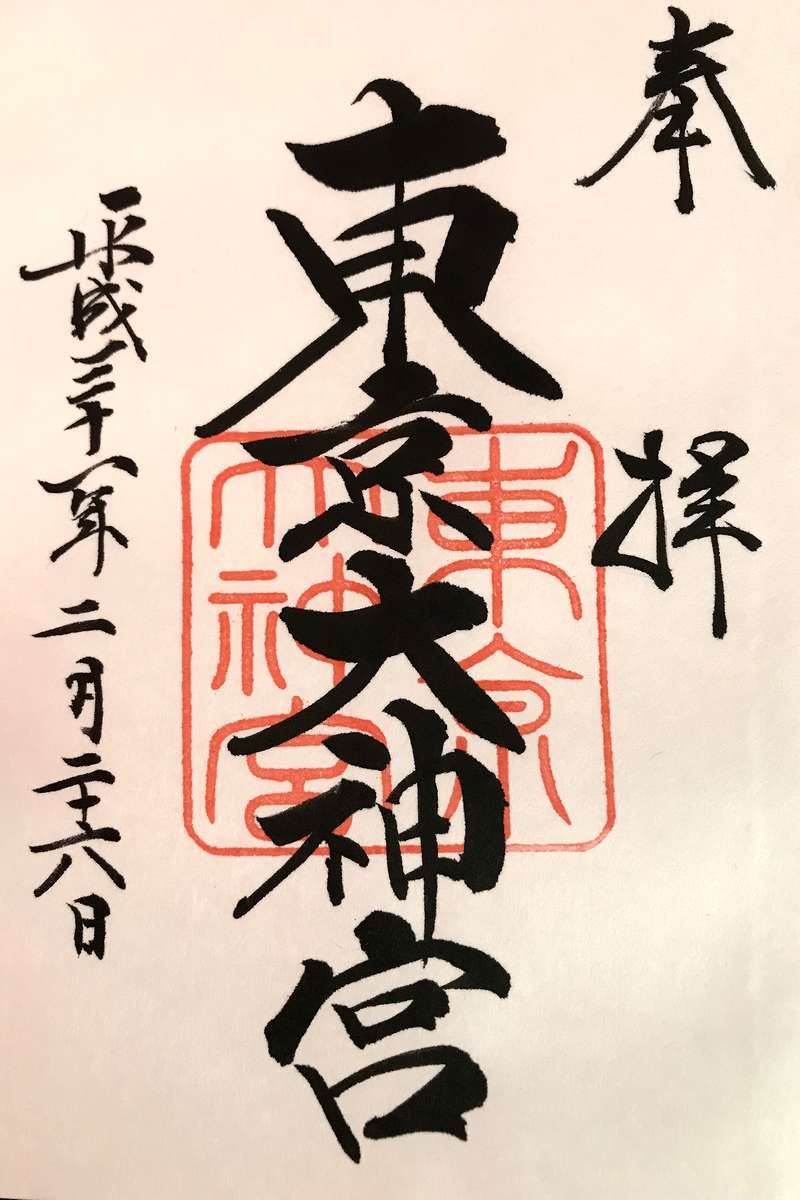 奉拝
東京大神宮
平成二十八年二月二十六日
東京
大神宮